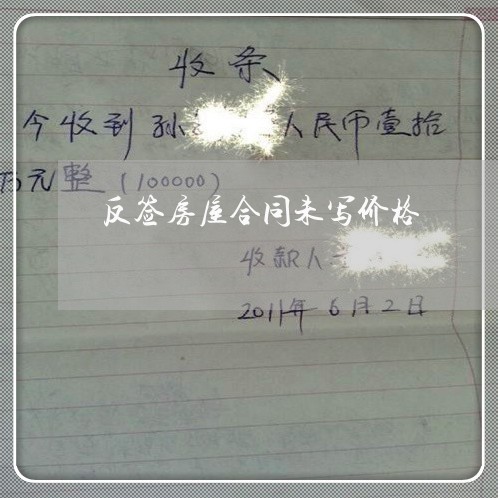 收条
今收到孙 人民币壹拾
万元整(100000)
反签房屋合同未写价格
收款人
2011年6月2日